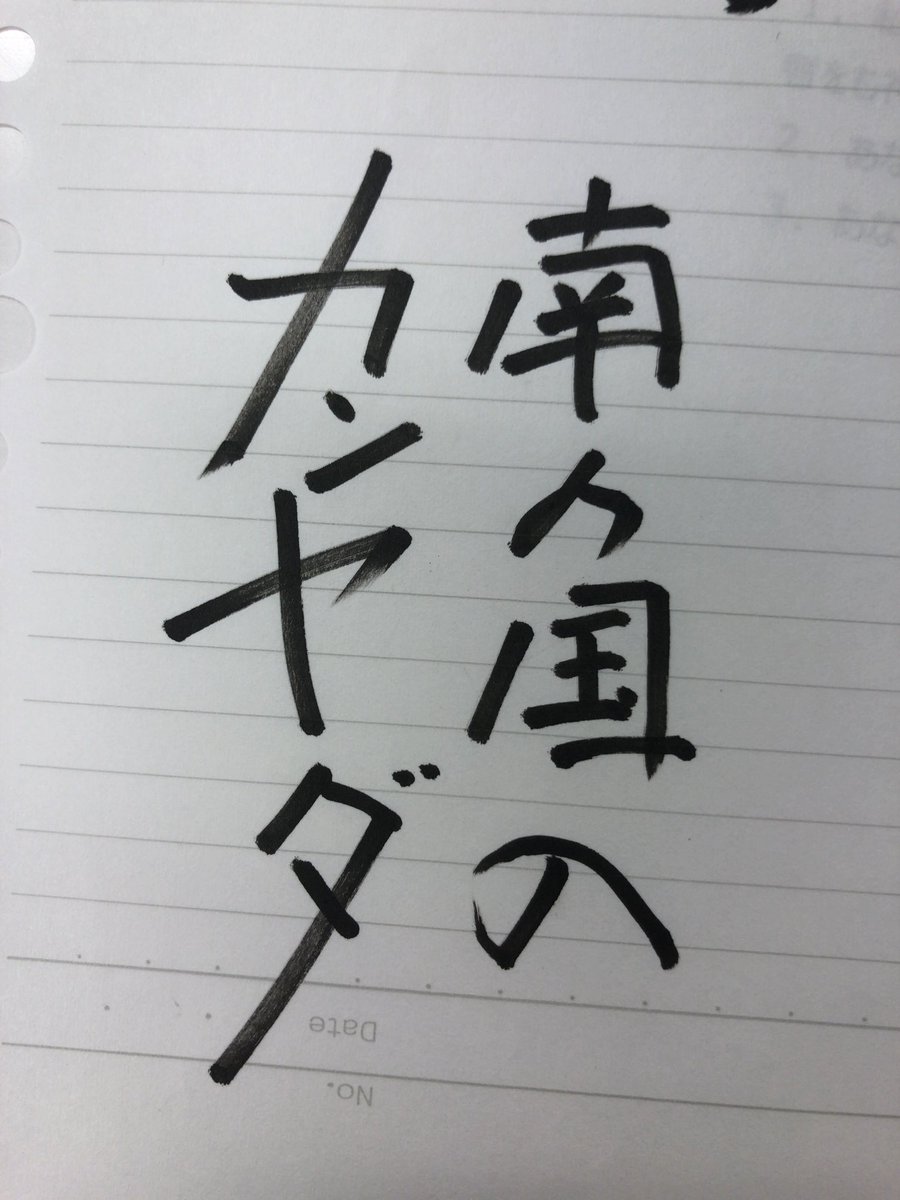 南の国の
カンヤダ
No.
Date